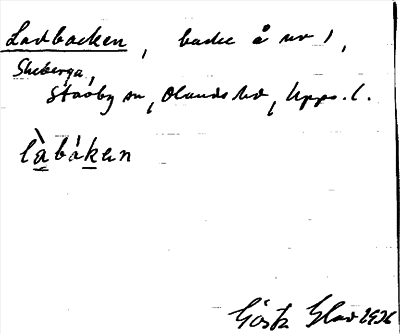 Ladbacken, backe å nr 1,
Skeberga,
Stavby sn, Olands hd, Upps. l.
làbáken
Gösta Glad 1926